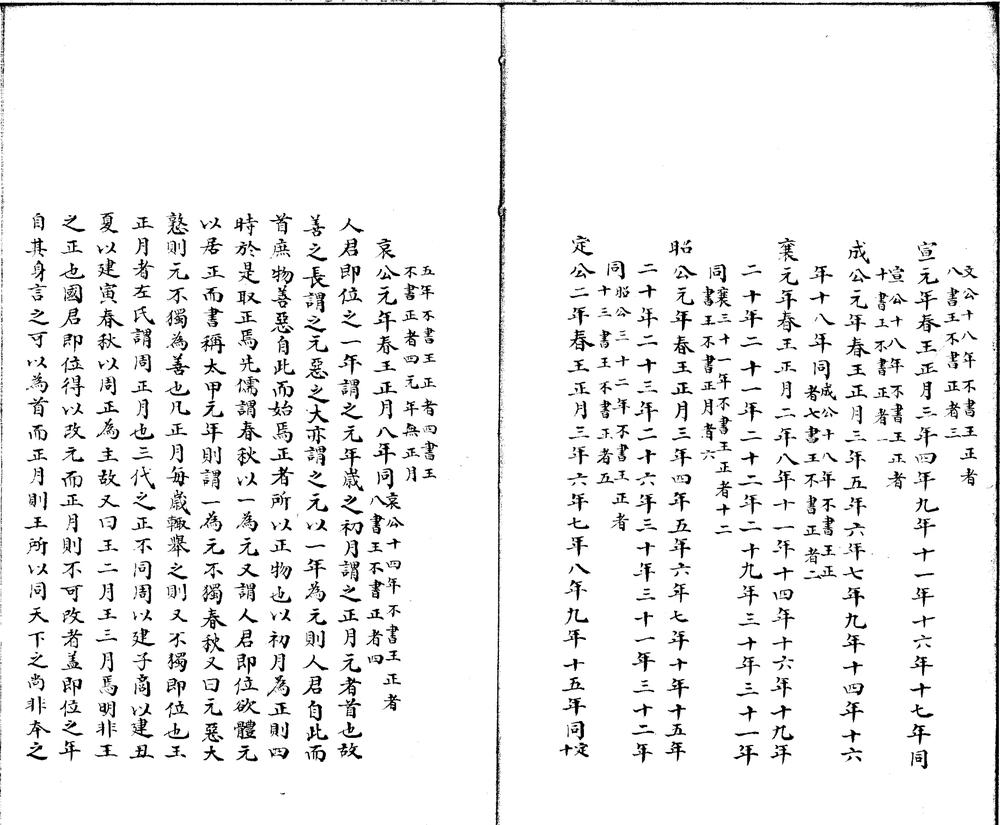 文公十八年不書王正者
八書王不書正者三
宣元年春王正月三年四年九年十一年十六年十七年同
宣公十八年不書王正者
十書王不書正者一
成公元年春王正月三年五年六年七年九年十四年十六
年十八年同成公十八年不書王正
者七書王不書正者二
襄元年春王正月二年八年十一年十四年十六年十九年
二十年二十一年二十二年二十九年三十年三十一年
同襄三十一年不書王正者十二
書王不書正月者六
昭公元年春王正月三年四年五年六年七年十年十五年
二十年二十三年二十六年三十年三十一年三十二年
同昭公三十二年不書王正者
十三書王不書正者五
定公二年春王正月三年六年七年八年九年十五年同定
十
五年不書王正者四書王
不書正者四元年無正月
哀公元年春王正月八年同哀公十四年不書王正者
八書王不書正者四
人君即位之一年謂之元年嵗之初月謂之正月元者首也故
善之長謂之元惡之大亦謂之元以一年為元則人君自此而
首庶物善惡自此而始焉正者所以正物也以初月為正則四
時於是取正焉先儒謂春秋以一為元又謂人君即位欲體元
以居正而書稱太甲元年則謂一為元不獨春秋又曰元惡大
憝則元不獨為善也凡正月每嵗輙舉之則又不獨即位也王
正月者左氏謂周正月也三代之正不同周以建子商以建丑
夏以建寅春秋以周正為主故又曰王二月王三月焉明非王
之正也國君即位得以改元而正月則不可改者蓋即位之年
自其身言之可以為首而正月則王所以同天下之尚非本之